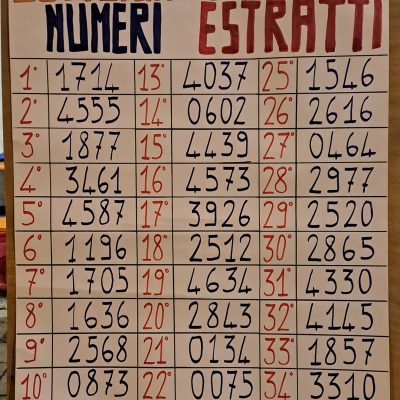 NUMERI ESTRATTI
1° 1714 13° 4037 25° 1546
2° 4555 14° 0602 26° 2616
3° 1877 15° 4439 27° 0464
4° 3461 16° 4573 28° 2977
5° 4587 17° 3926 29° 2520
6° 1196 18° 2512 30° 2865
7° 1705 19° 4634 31° 4330
8° 1636 20° 2843 32° 4145
9° 2568 21° 0134 33° 1857
10° 0873 22° 0075 34° 3310